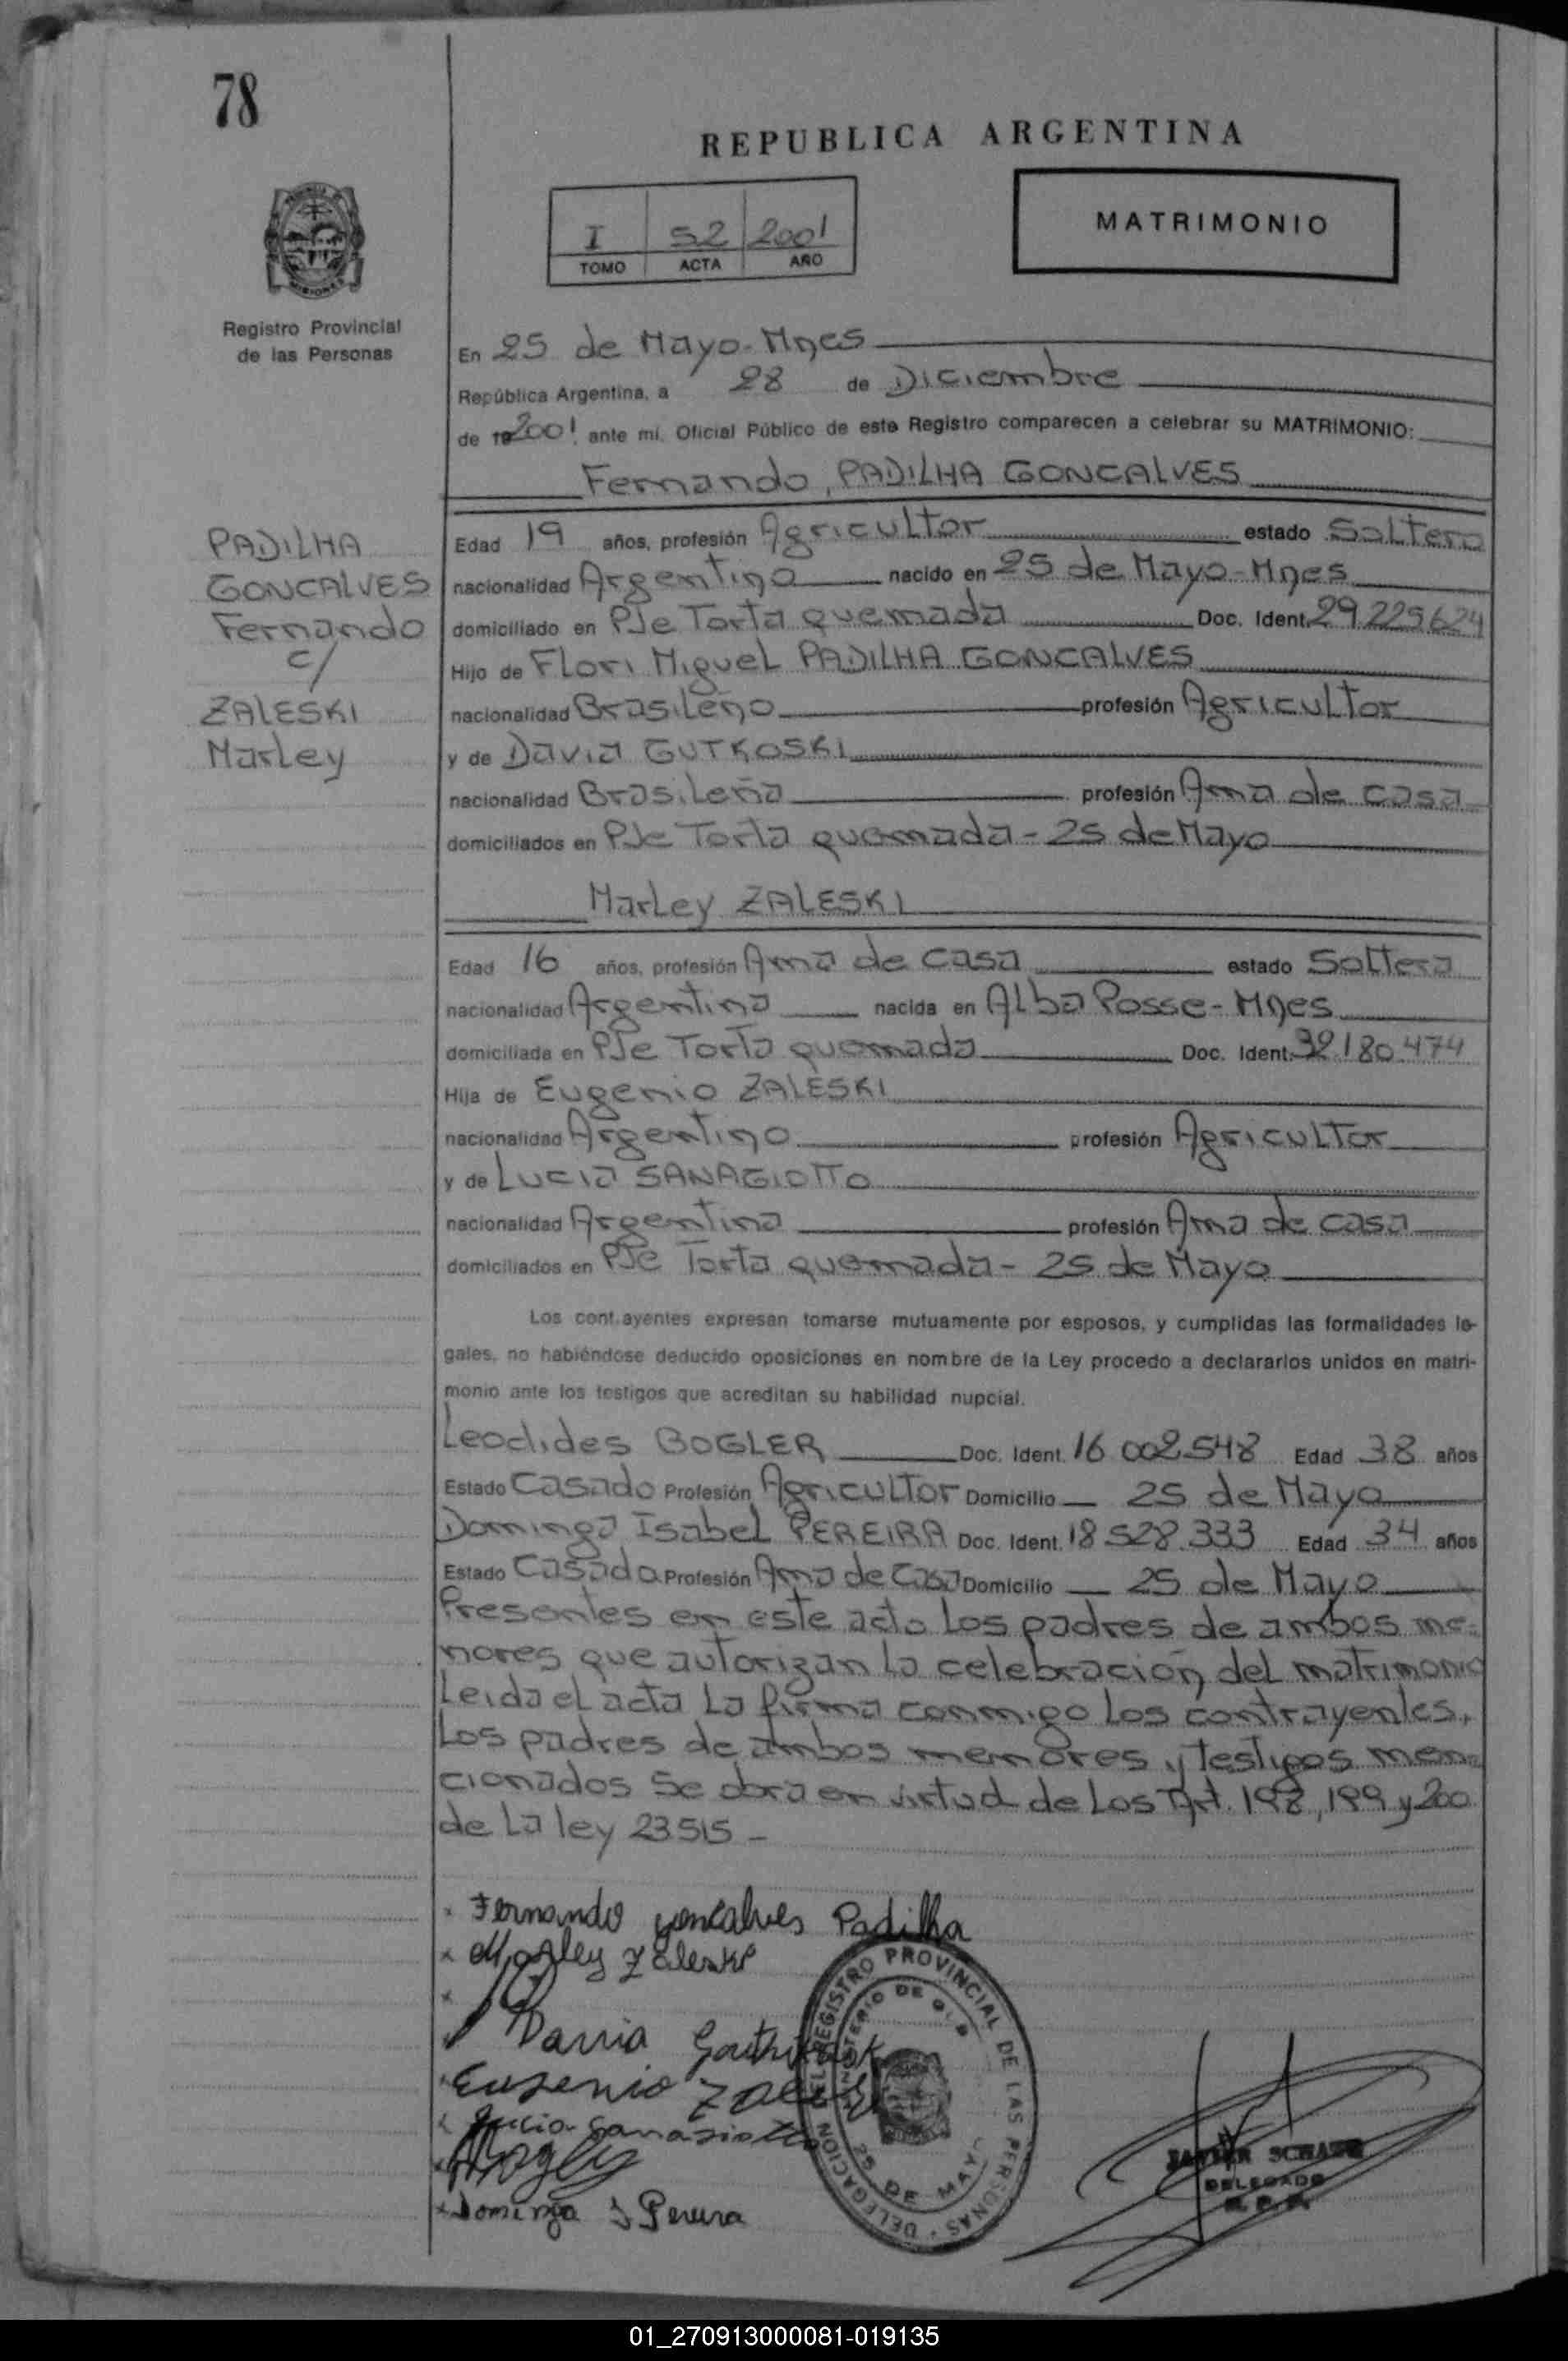 78
REPUBLICA ARGENTINA
I 52 2001
TOMO ACTA AÑO
MATRIMONIO
MISIONES
Registro Provincial
de las Personas
En 25 de Mayo-Mnes
República Argentina, a 28 de Diciembre
de 19 2001, ante mí, Oficial Público de este Registro comparecen a celebrar su MATRIMONIO:
Fernando, PADILHA GONCALVES
PADILHA
GONCALVES
Fernando
c/
ZALESKI
Marley
Edad 19 años, profesión Agricultor estado Soltero
nacionalidad Argentino nacido en 25 de Mayo-Mnes
domiciliado en PJe Torta quemada Doc. Ident. 29.225.624
Hijo de Flori Miguel PADILHA GONCALVES
nacionalidad Brasileño profesión Agricultor
y de Davia GUTKOSKI
nacionalidad Brasileña profesión Ama de casa
domiciliados en PJe Torta quemada - 25 de Mayo
Marley ZALESKI
Edad 16 años, profesión Ama de casa estado Soltera
nacionalidad Argentina nacida en Alba Posse-Mnes
domiciliada en PJe Torta quemada Doc. Ident. 32.180.474
Hija de Eugenio ZALESKI
nacionalidad Argentino profesión Agricultor
y de Lucia SANAGIOTTO
nacionalidad Argentina profesión Ama de casa
domiciliados en PJe Torta quemada - 25 de Mayo
Los contrayentes expresan tomarse mutuamente por esposos, y cumplidas las formalidades le-
gales, no habiéndose deducido oposiciones en nombre de la Ley procedo a declararlos unidos en matri-
monio ante los testigos que acreditan su habilidad nupcial.
Leodides BOGLER Doc. Ident. 16.002.548 Edad 38 años
Estado Casado Profesión Agricultor Domicilio 25 de Mayo
Dominga Isabel PEREIRA Doc. Ident. 18.528.333 Edad 34 años
Estado Casada Profesión Ama de Casa Domicilio 25 de Mayo
Presentes en este acto los padres de ambos me-
nores que autorizan la celebración del matrimonio
Leida el acta la firma conmigo los contrayentes,
los padres de ambos menores y testigos men-
cionados Se obra en virtud de los Art. 198, 199 y 200
de la ley 23.515 -
x Fernando gonçalves Padilha
x Marley Zaleski
x
Eugenio Zaleski
x Lucia Sanagiotto
x Dominga I Pereira
DELEGACION DEL REGISTRO PROVINCIAL DE LAS PERSONAS
MINISTERIO DE GOB
25 DE MAYO
JAVIER
DELEGADO
01_270913000081-019135